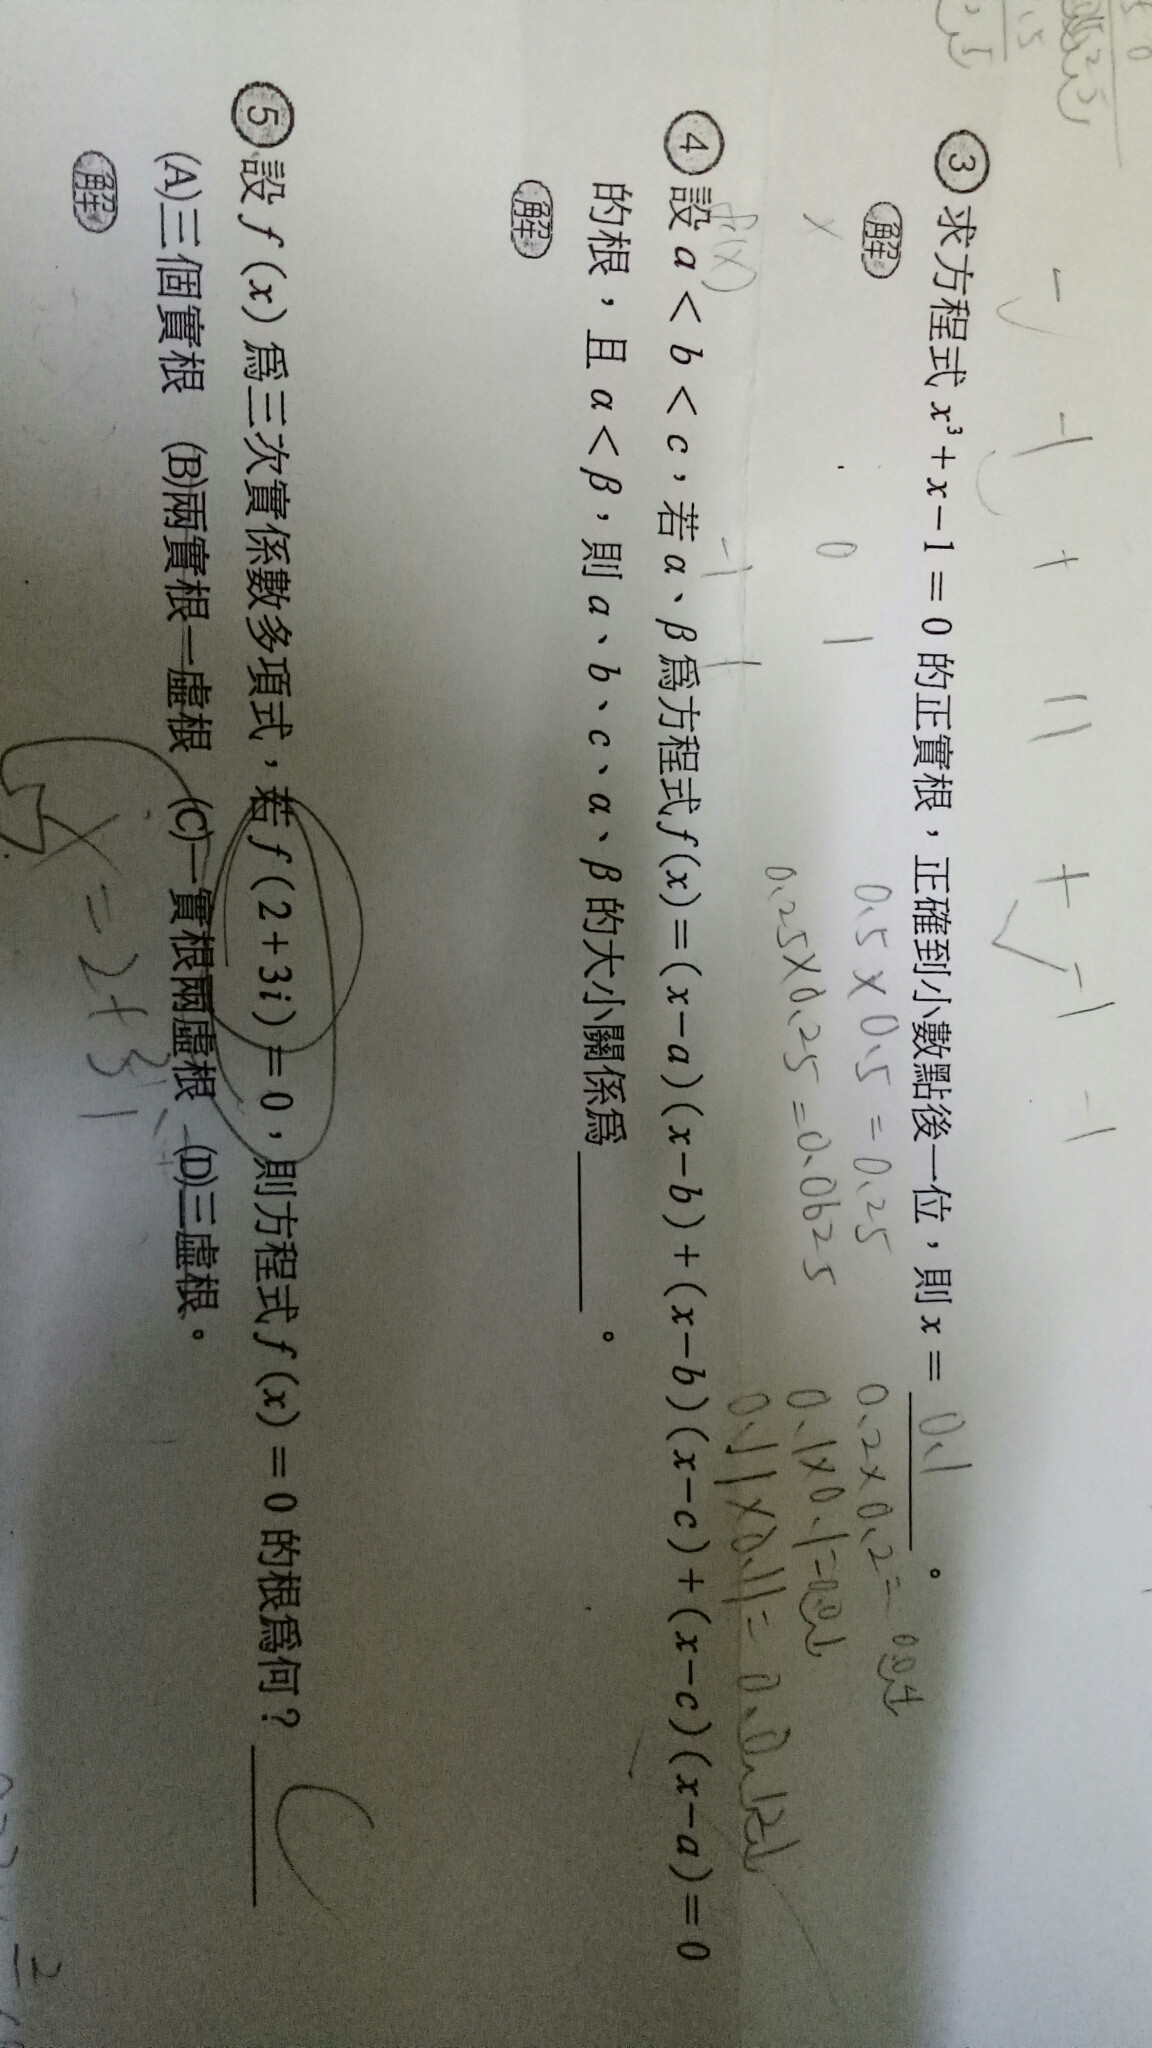 ③求方程式 x³+x-1=0 的正實根，正確到小數點後一位，則 x= 0.1 。
解
x 0 1
f(x) -1 1
0.5×0.5=0.25
0.25×0.25=0.0625
0.2×0.2=0.04
0.1×0.1=0.01
0.11×0.11=0.0121
④設 a<b<c，若 α、β 爲方程式 f(x)=(x-a)(x-b)+(x-b)(x-c)+(x-c)(x-a)=0
的根，且 α<β，則 a、b、c、α、β 的大小關係爲________。
解
⑤設 f(x) 爲三次實係數多項式，若 f(2+3i)=0，則方程式 f(x)=0 的根爲何？ C
(A)三個實根 (B)兩實根一虛根 (C)一實根兩虛根 (D)三虛根。
解
x=2+3i